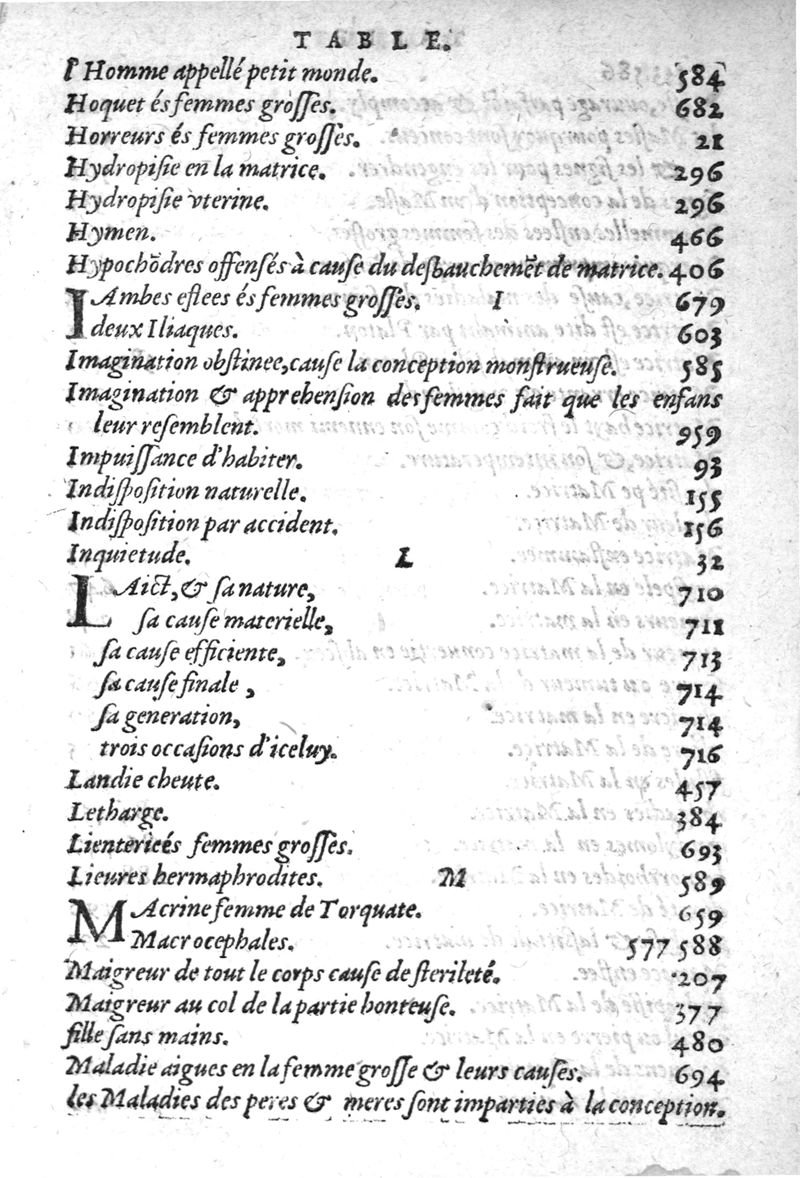 TABLE.
l'Homme appellé petit monde. 584
Hoquet és femmes grosses. 682
Horreurs és femmes grosses. 21
Hydropisie en la matrice. 296
Hydropisie vterine. 296
Hymen. 466
Hypochõdres offensés à cause du desbauchemẽt de matrice. 406
I
IAmbes eflees és femmes grosses. 679
deux Iliaques. 603
Imagination obstinee, cause la conception monstrueuse. 585
Imagination & apprehension des femmes fait que les enfans
leur resemblent. 959
Impuissance d'habiter. 93
Indisposition naturelle. 155
Indisposition par accident. 156
Inquietude. 32
L
LAict, & sa nature, 710
sa cause materielle, 711
sa cause efficiente, 713
sa cause finale, 714
sa generation, 714
trois occasions d'iceluy. 716
Landie cheute. 457
Letharge. 384
Lientericés femmes grosses. 693
Lieures hermaphrodites. 589
M
MAcrine femme de Torquate. 659
Macrocephales. 577 588
Maigreur de tout le corps cause de sterileté. 207
Maigreur au col de la partie honteuse. 377
fille sans mains. 480
Maladie aigues en la femme grosse & leurs causes. 694
les Maladies des peres & meres sont imparties à la conception.